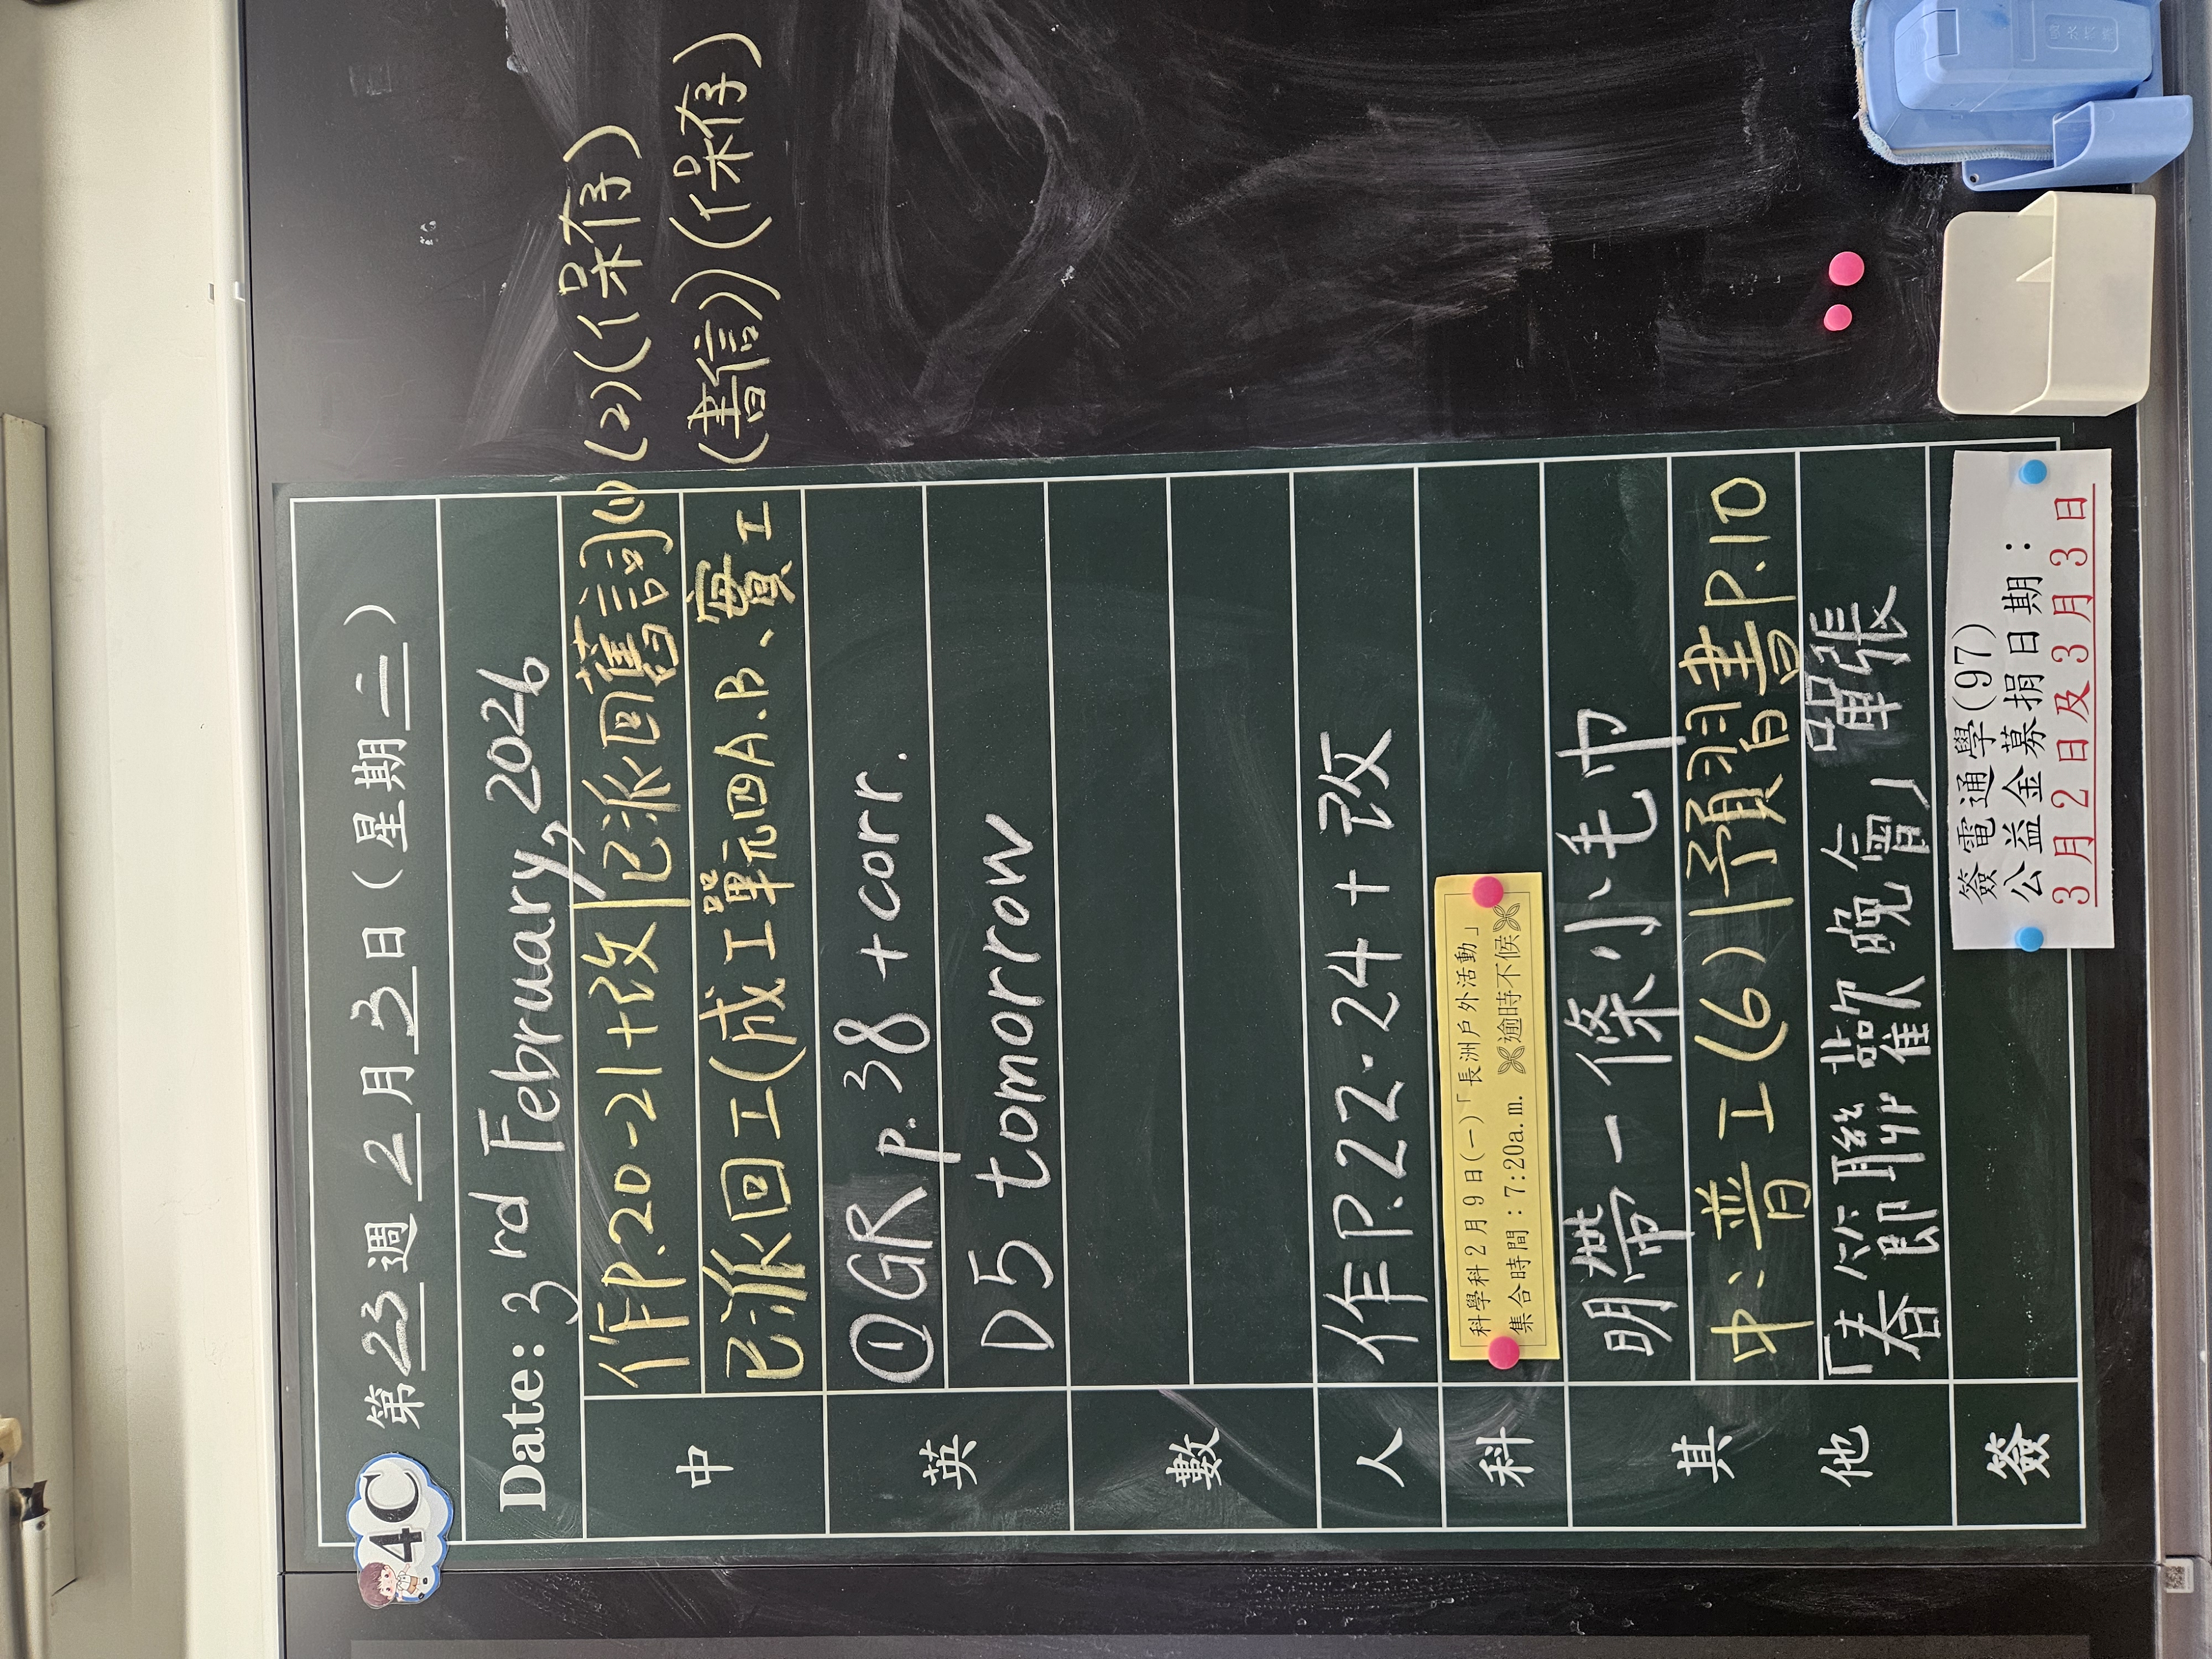 4C
第23週2月3日(星期二)
Date: 3rd February, 2026
中
作P.20-21+改|已派回舊詞(1)(2)(保存)
已派回工(成工單元四A.B、實工(書信))(保存)
英
①GR p.38 +corr.
D5 tomorrow
數
人
作P.22-24+改
科
科學科2月9日(一)「長洲戶外活動」
集合時間:7:20a.m. 逾時不候
其他
明帶一條小毛巾
中、普工(6)|預習書P.10
「春節聯歡晚會」單張
簽
簽電通學(97)
公益金募捐日期:
3月2日及3月3日